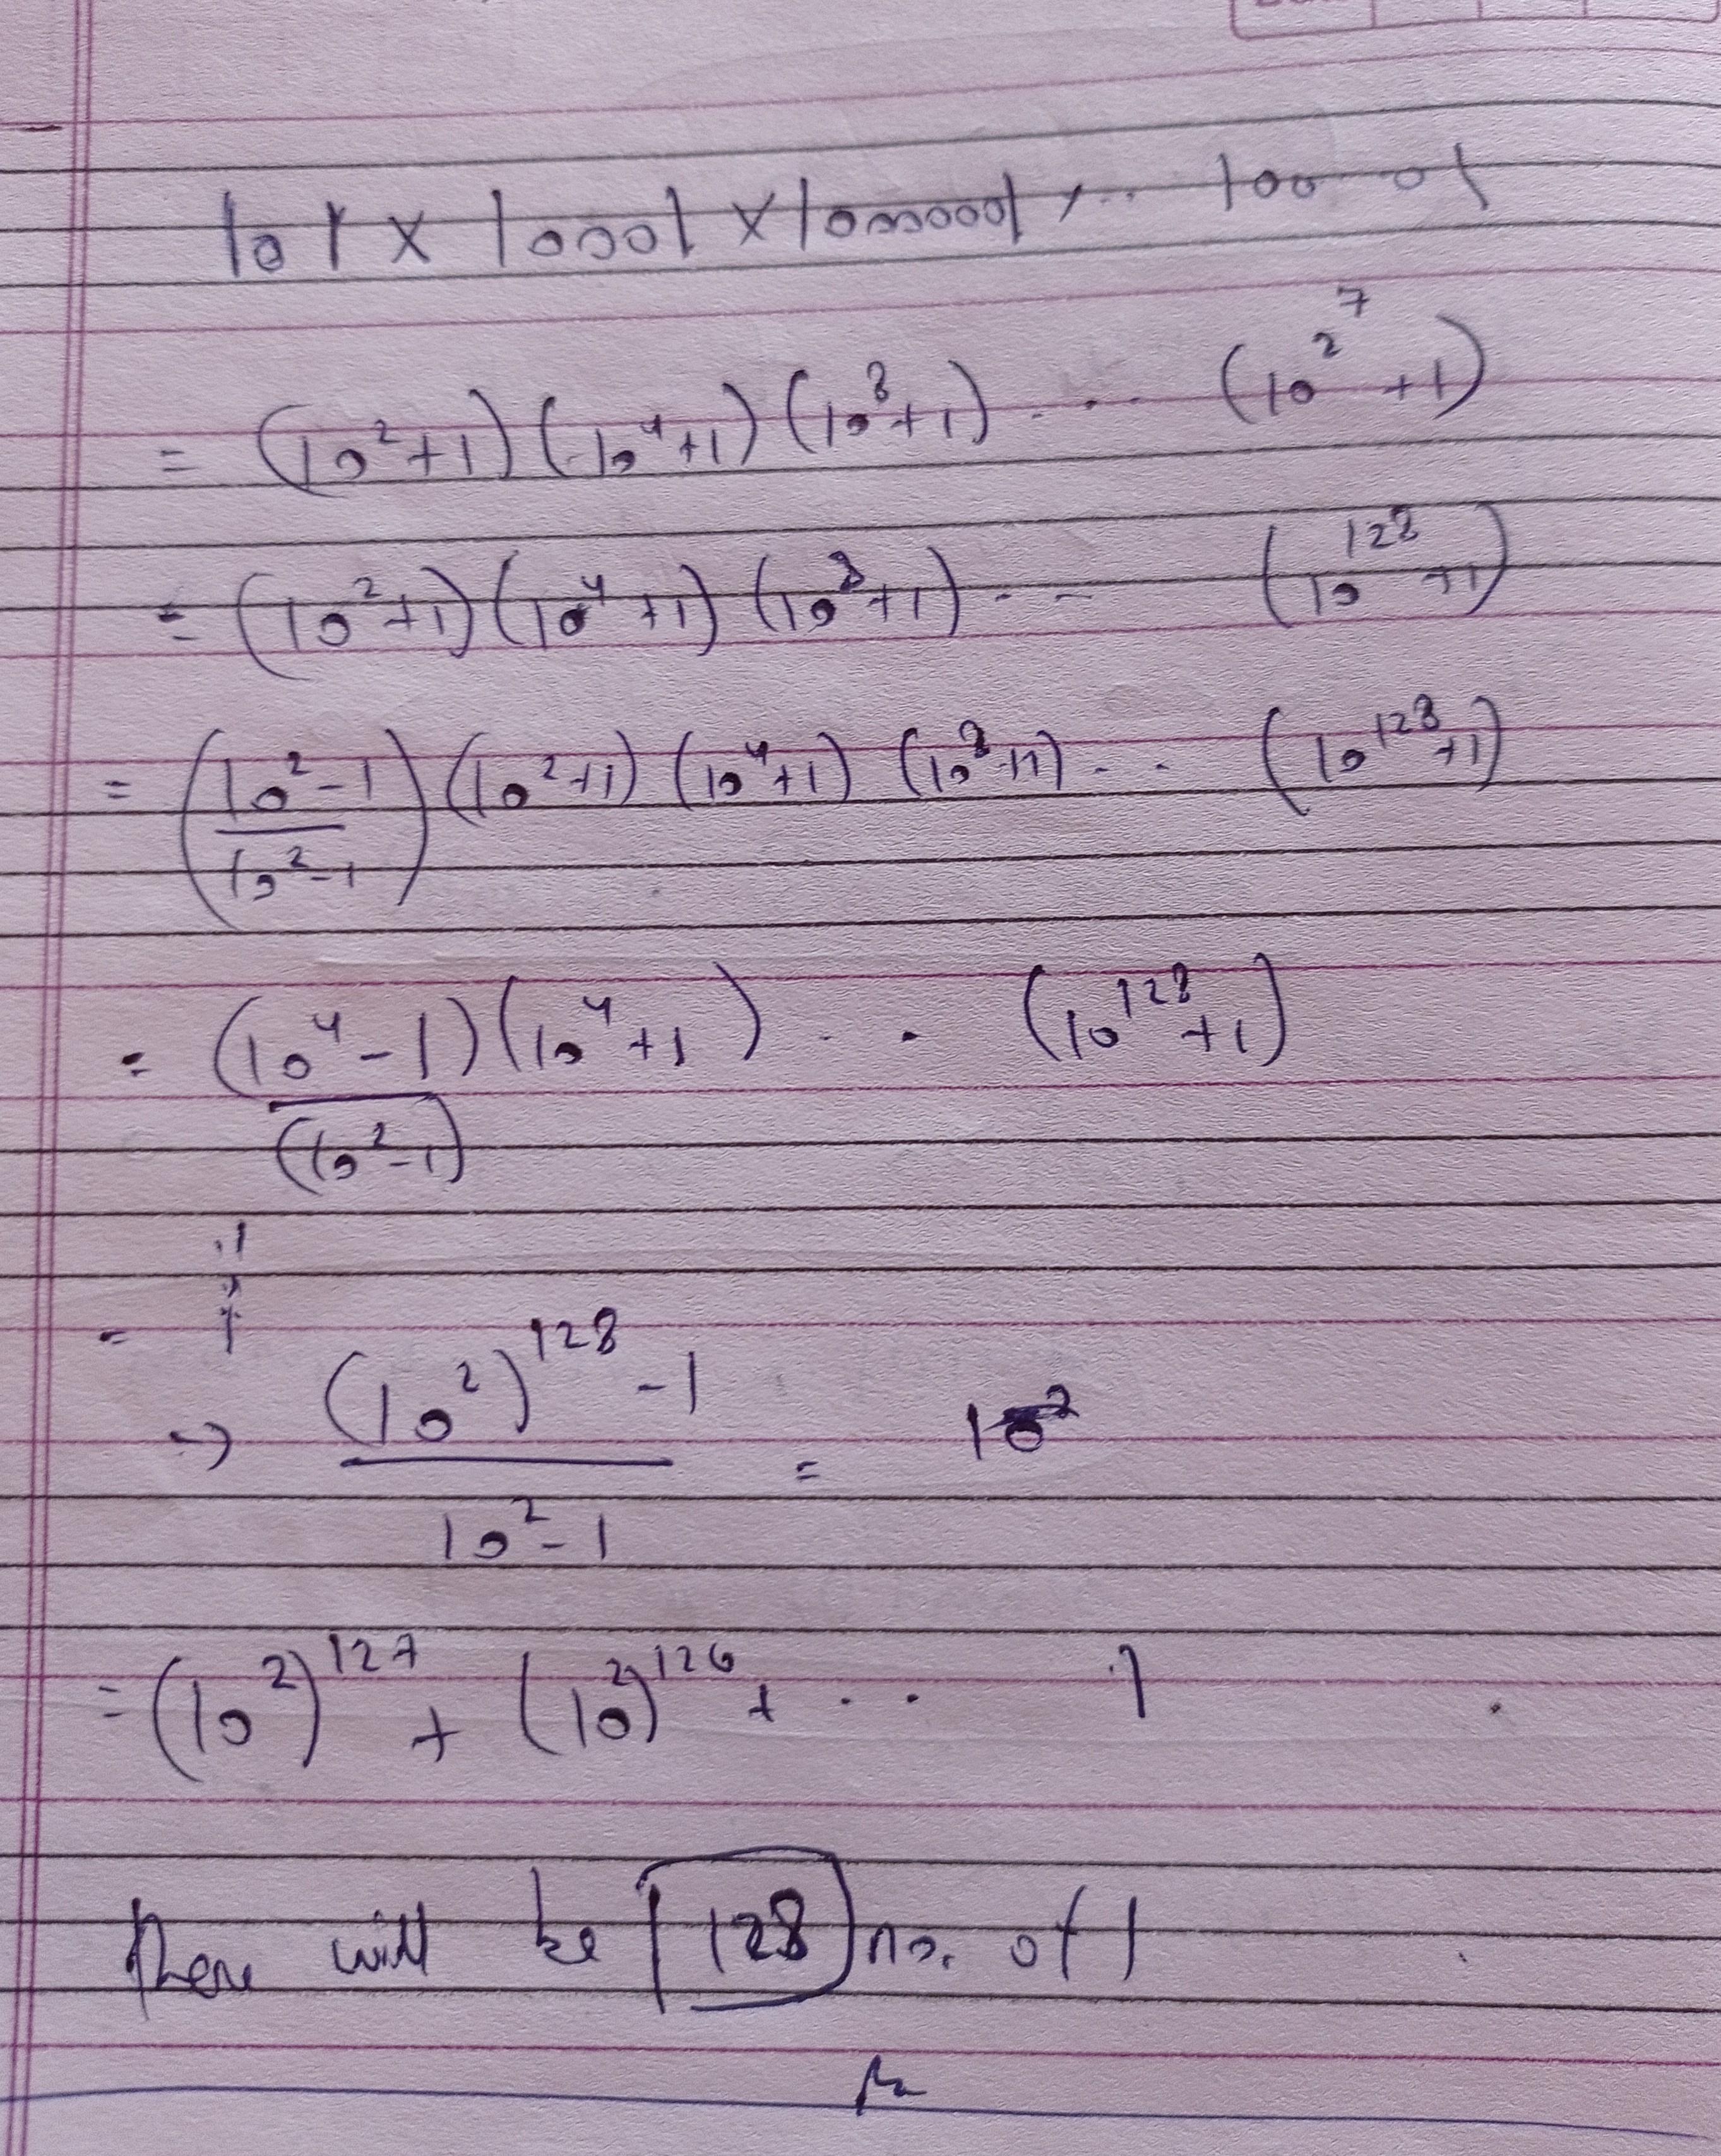 101 × 10001 × 100000001 × ... 100 01
= (10²+1)(10⁴+1)(10⁸+1) ... (10^2^7 +1)
= (10²+1)(10⁴+1)(10⁸+1) -- (10^128 +1)
= (10²-1 / 10²-1)(10²+1)(10⁴+1)(10⁸+1) .. (10^128 +1)
= (10⁴-1)(10⁴+1) .. (10^128 +1)
(10²-1)
=
→ (10²)^128 -1 / 10²-1 = 10²
= (10²)^127 + (10²)^126 + ... 1
there will be 128 no. of 1